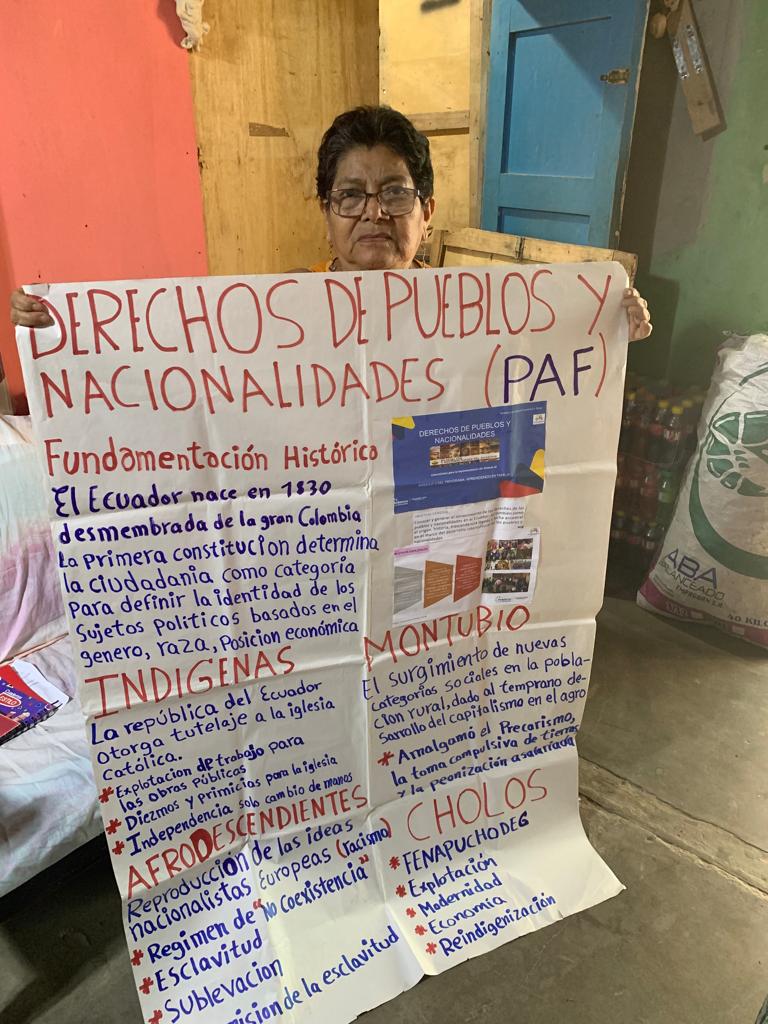 DERECHOS DE PUEBLOS Y
NACIONALIDADES (PAF)
Fundamentación Histórica
El Ecuador nace en 1830
desmembrada de la gran Colombia
La primera constitucion determina
la ciudadania como categoría
para definir la identidad de los
Sujetos politicos basados en el
genero, raza, posicion económica
DERECHOS DE PUEBLOS Y
NACIONALIDADES
INDIGENAS
La república del Ecuador
otorga tutelaje a la iglesia
Católica.
* Explotacion de trabajo para
las obras públicas
* Diezmos y primicias para la iglesia
* Independencia solo cambio de manos
MONTUBIO
El surgimiento de nuevas
categorías sociales en la pobla-
cion rural, dado al temprano de-
sarrollo del capitalismo en el agro
* Amalgamó el Precarismo,
la toma compulsiva de tierras
y la peonización asalariada
AFRODESCENDIENTES
Reproduccion de las ideas
nacionalistas Europeas (racismo)
* Regimen de "No coexistencia"
* Esclavitud
* Sublevacion
ision de la esclavitud
CHOLOS
* FENAPUCHODEG
* Explotación
* Modernidad
* Economia
* Reindigenización
ABA
BALANCEADO
40 KILO